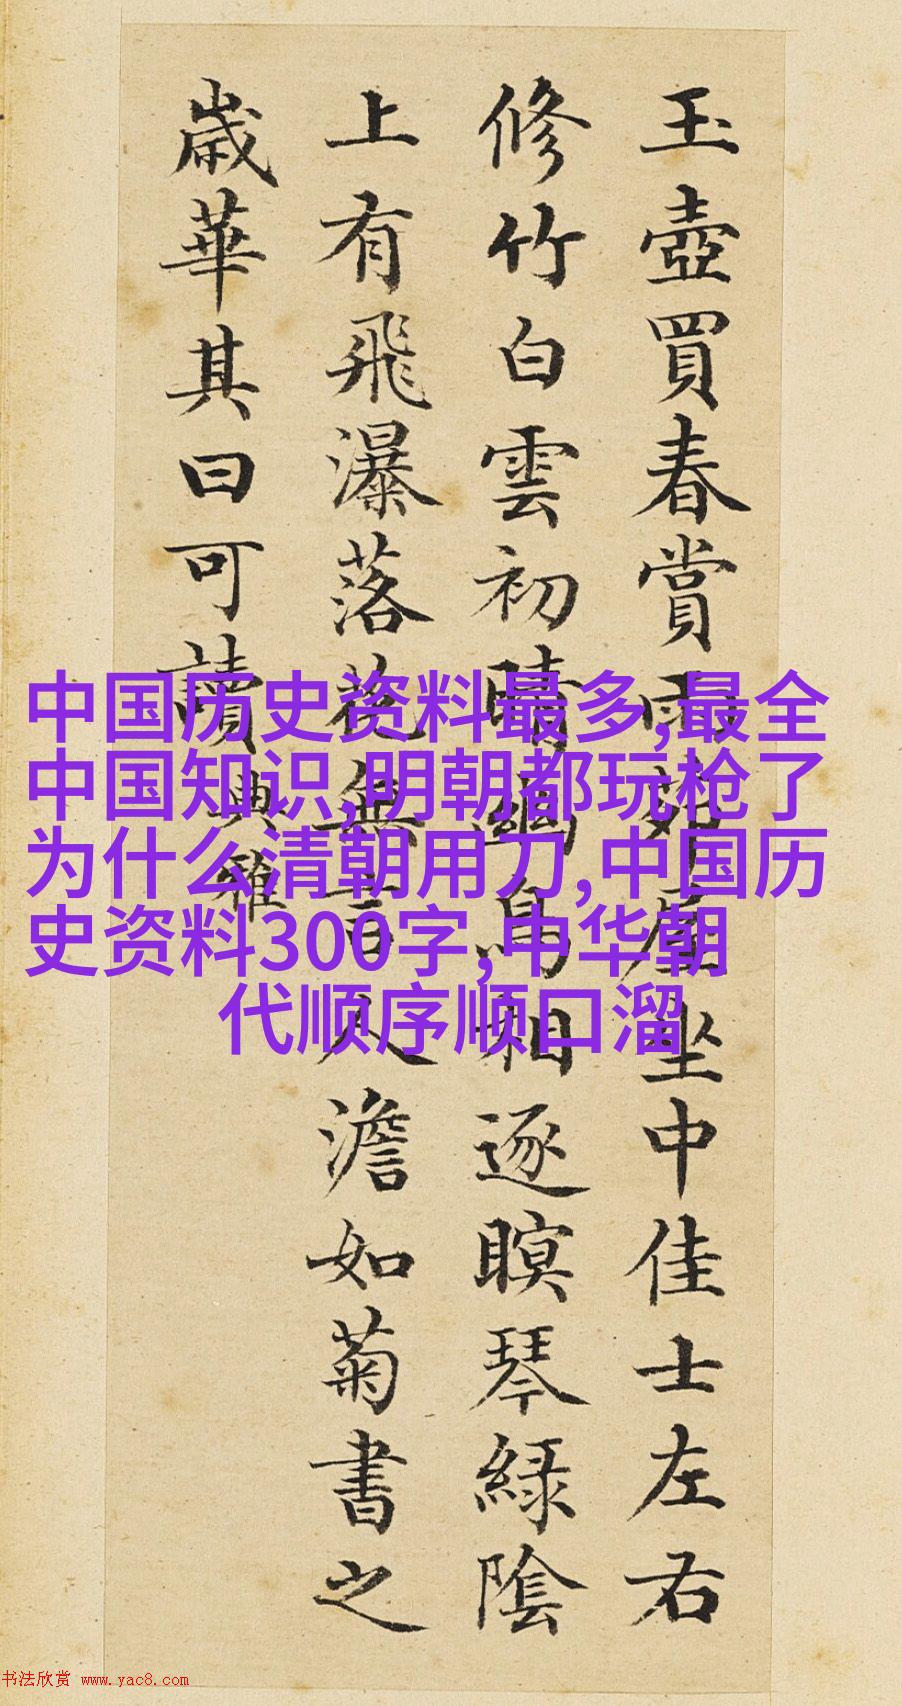 玉壺買春賞雨茆屋坐中佳士左右
修竹白雲初晴幽鳥相逐瞑琴綠陰
上有飛瀑落花無言人澹如菊書之
歲華其曰可讀
典雅
中国历史资料最多,最全
中国知识,明朝都玩枪了
为什么清朝用刀,中国历
史资料300字,中华朝
代顺序顺口溜
书法欣赏 www.yac8.com